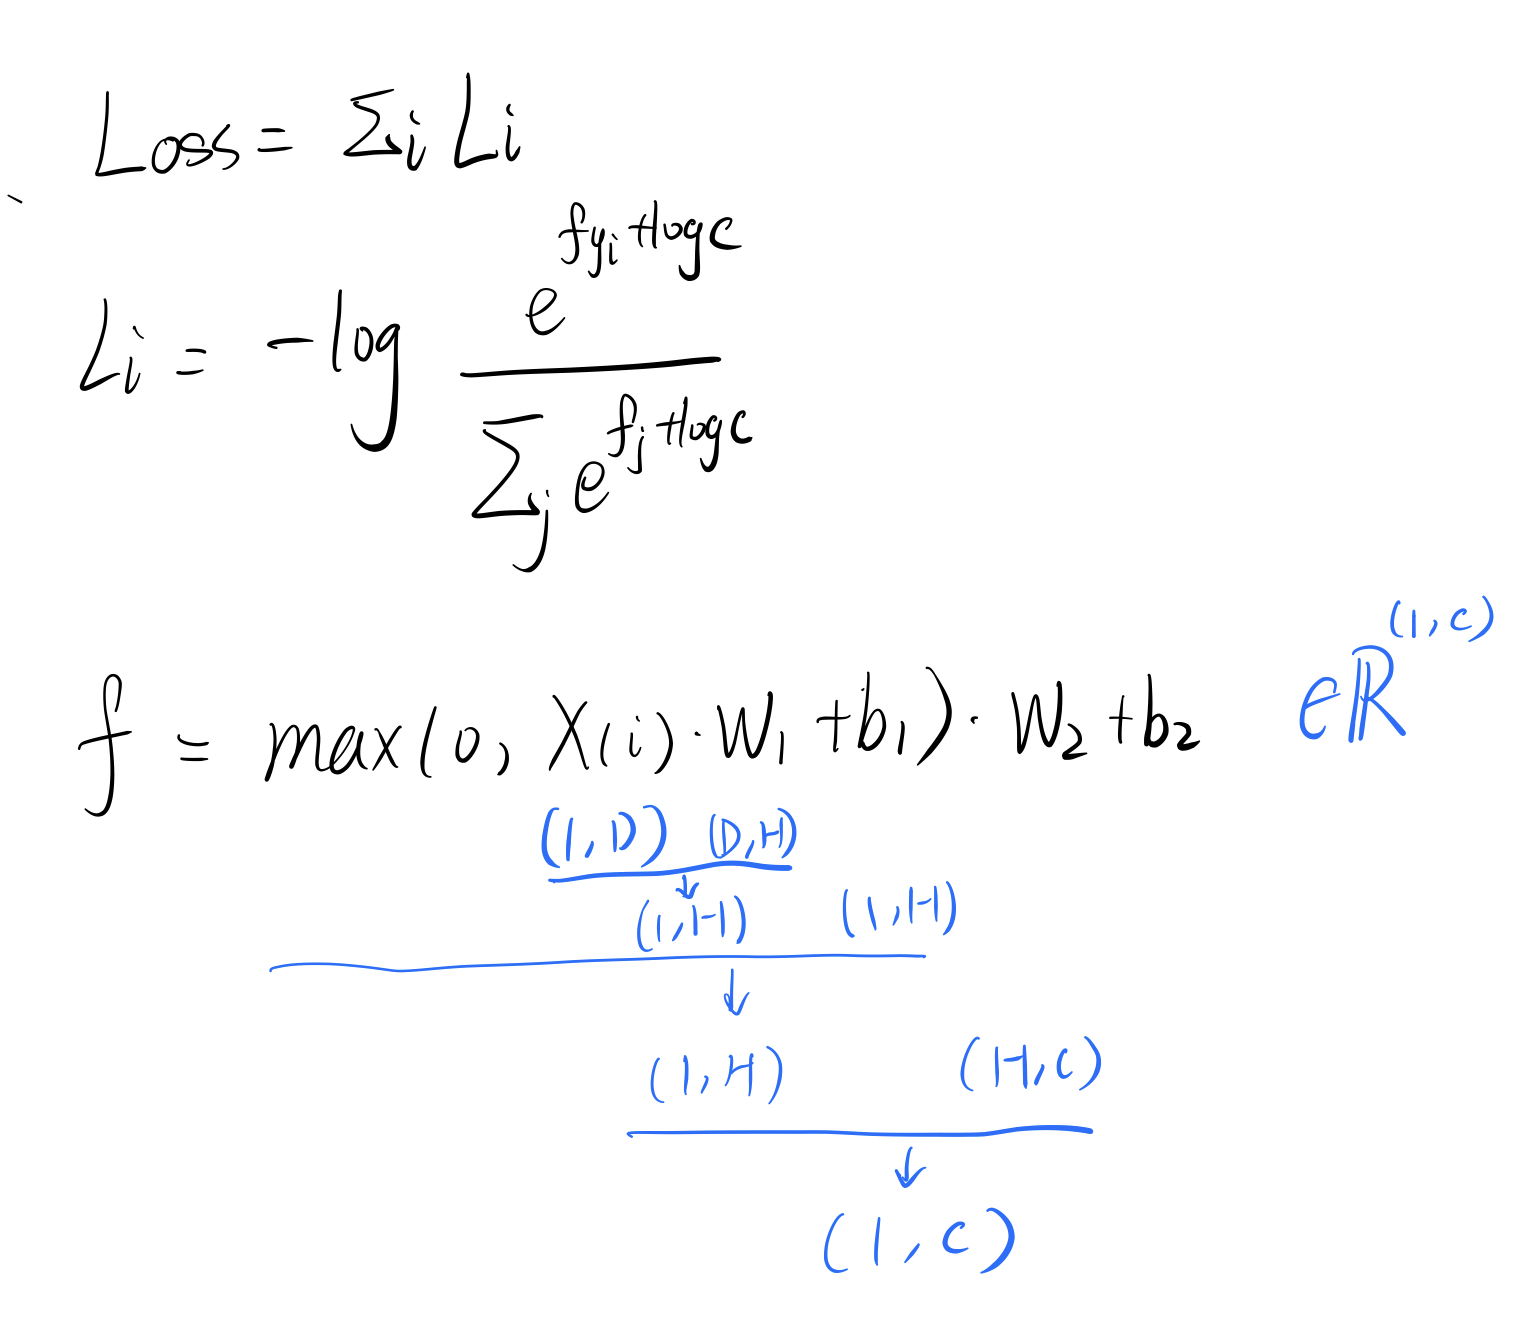 Loss = Σi Li
Li = -log e^(fyi + log c) / Σj e^(fj + log c)
f = max(0, X(i)·W₁ + b₁)·W₂ + b₂ ∈ℝ^(1,C)
(1,D) (D,H)
(1,H) (1,H)
(1,H) (H,C)
(1,C)